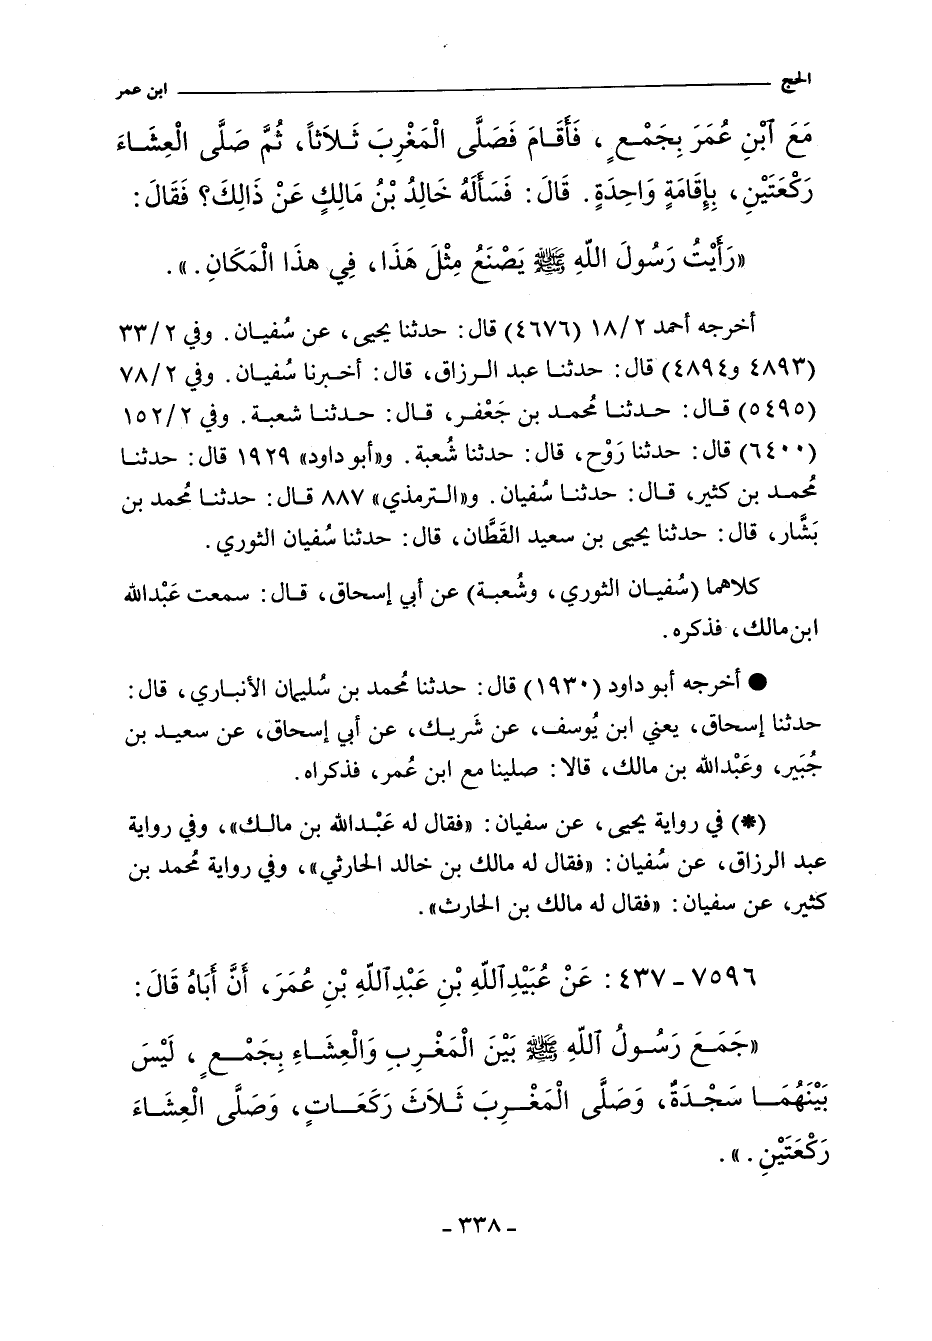 الحج ابن عمر
مَعَ ٱبْنِ عُمَرَ بِجَمْعٍ ، فَأَقَامَ فَصَلَّى الْمَغْرِبَ ثَلَاثاً، ثُمَّ صَلَّى الْعِشَاءَ
رَكْعَتَيْنِ، بِإِقَامَةٍ وَاحِدَةٍ. قَالَ: فَسَأَلَهُ خَالِدُ بْنُ مَالِكٍ عَنْ ذَالِكَ؟ فَقَالَ:
«رَأَيْتُ رَسُولَ اللّهِ ﷺ يَصْنَعُ مِثْلَ هَذَا، فِي هذَا الْمَكَانِ.».
أخرجه أحمد ١٨/٢ (٤٦٧٦) قال: حدثنا يحيى، عن سُفيان. وفي ٣٣/٢
(٤٨٩٣ و٤٨٩٤) قال: حدثنا عبد الرزاق، قال: أخبرنا سُفيان. وفي ٧٨/٢
(٥٤٩٥) قال: حدثنا مُحمد بن جَعْفر، قال: حدثنا شعبة. وفي ١٥٢/٢
(٦٤٠٠) قال: حدثنا رَوْح، قال: حدثنا شُعبة. و«أبو داود» ١٩٢٩ قال: حدثنا
مُحمد بن كثير، قال: حدثنا سُفيان. و«الترمذي» ٨٨٧ قال: حدثنا مُحمد بن
بَشَّار، قال: حدثنا يحيى بن سعيد القَطَّان، قال: حدثنا سُفيان الثوري.
كلاهما (سُفيان الثوري، وشُعبة) عن أبي إسحاق، قال: سمعت عَبْدالله
ابن مالك، فذكره.
● أخرجه أبو داود (١٩٣٠) قال: حدثنا مُحمد بن سُليمان الأنباري، قال:
حدثنا إسحاق، يعني ابن يُوسف، عن شَريك، عن أبي إسحاق، عن سعيد بن
جُبَير، وعَبْدالله بن مالك، قالا: صلينا مع ابن عُمر، فذكراه.
(*) في رواية يحيى، عن سفيان: «فقال له عَبْدالله بن مالك»، وفي رواية
عبد الرزاق، عن سُفيان: «فقال له مالك بن خالد الحارثي»، وفي رواية مُحمد بن
كثير، عن سفيان: «فقال له مالك بن الحارث».
٧٥٩٦ - ٤٣٧: عَنْ عُبَيْدِٱللّهِ بْنِ عَبْدِٱللّهِ بْنِ عُمَرَ، أَنَّ أَبَاهُ قَالَ:
«جَمَعَ رَسُولُ ٱللّهِ ﷺ بَيْنَ الْمَغْرِبِ وَالْعِشَاءِ بِجَمْعٍ ، لَيْسَ
بَيْنَهُمَا سَجْدَةٌ، وَصَلَّى الْمَغْرِبَ ثَلَاثَ رَكَعَاتٍ، وَصَلَّى الْعِشَاءَ
رَكْعَتَيْنِ.».
- ٣٣٨ -